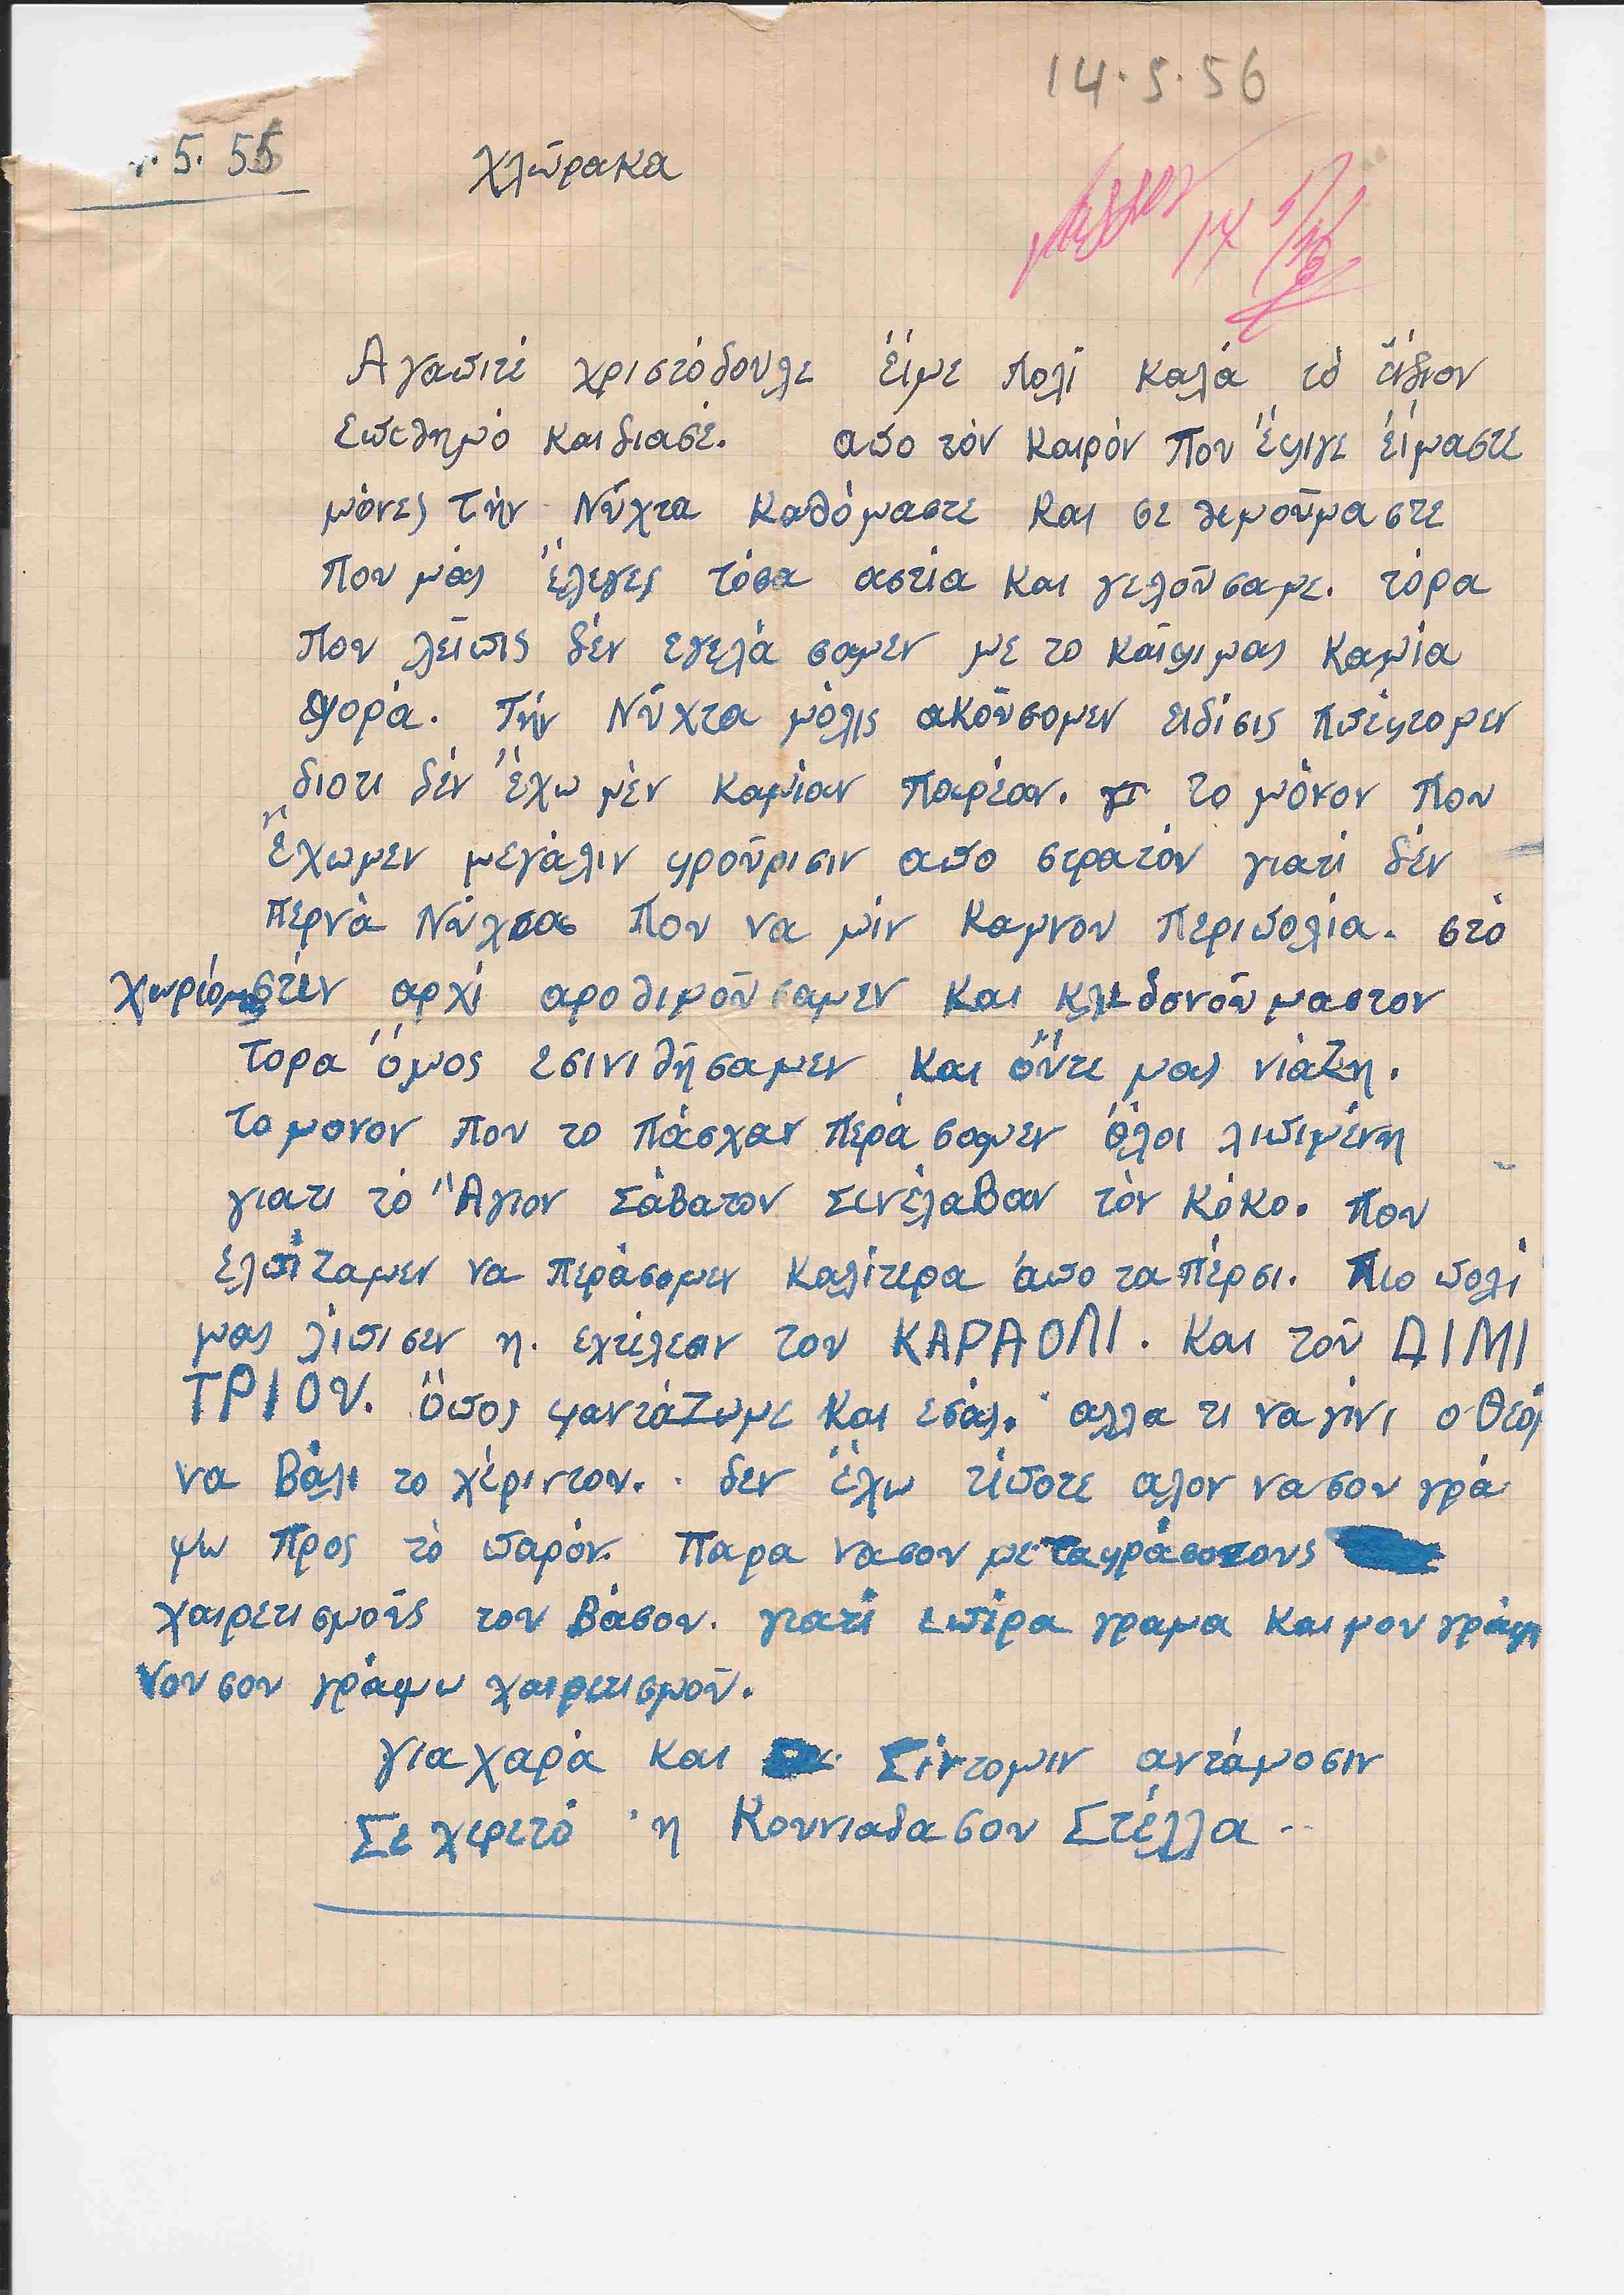 14.5.56
5. 56
Χλώρακα
14 5/56
Αγαπιτέ χριστόδουλε είμε πολί καλά τό ίδιον
επιθημό και διασέ. απο τόν καιρόν που έφιγε είμαστε
μόνες τήν Νύχτα καθόμαστε και σε θιμούμαστε
που μάς έλεγες τόσα αστία και γελούσαμε. τόρα
που λείπις δέν εγελάσαμεν με το κέιφιμας καμία
φορά. Τήν Νύχτα μόλις ακούσομεν ειδίσις ππέφτομεν
διοτι δέν έχωμεν καμίαν παρέαν. το μόνον που
έχωμεν μεγάλιν φρούρισιν απο στρατόν γιατί δέν
περνά Νύχτα που να μίν καμνουν περιπολία. στό
χωριόμας στιν αρχί αροθιμούσαμεν και κλιδονούμαστον
τορα όμος εσινιθήσαμεν και όυτε μας νιάζη.
το μονον που το πάσχαν περάσαμεν όλοι λιπιμένη
γιατι τό Άγιον Σάβατον σινέλαβαν τόν Κόκο. που
ελπίζαμεν να περάσομεν καλίτερα άπο ταπέρσι. πιο πολί
μας λίπισεν η. εχτέλεσιν του ΚΑΡΑΟΛΙ. και τού ΔΙΜΙ
ΤΡΙΟΥ. όπος φαντάζωμε και εσάς. αλλα τι να γίνι ο Θεός
να Βάλι το χέριντου. δεν έχω τίποτε αλον νασου γρά
ψω προς τό παρόν. παρα νασου μεταφράσοτους
χαιρετισμούς του Βάσου. γιατί επίρα γραμα και μου γράφι
νου σου γράφω χαιρετισμού.
γιαχαρά και Σίντομιν αντάμοσιν
Σε χερετό η Κουνιαδασου Στέλλα..